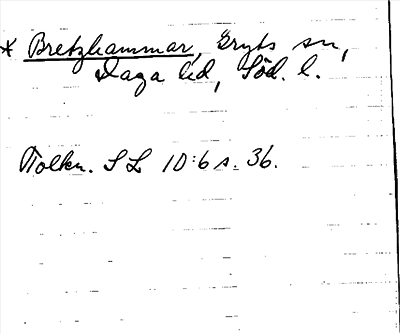 x Bretzhammar, Gryts sn,
Daga hd, Söd. l.
Tolkn. SL 10:6 s. 36.